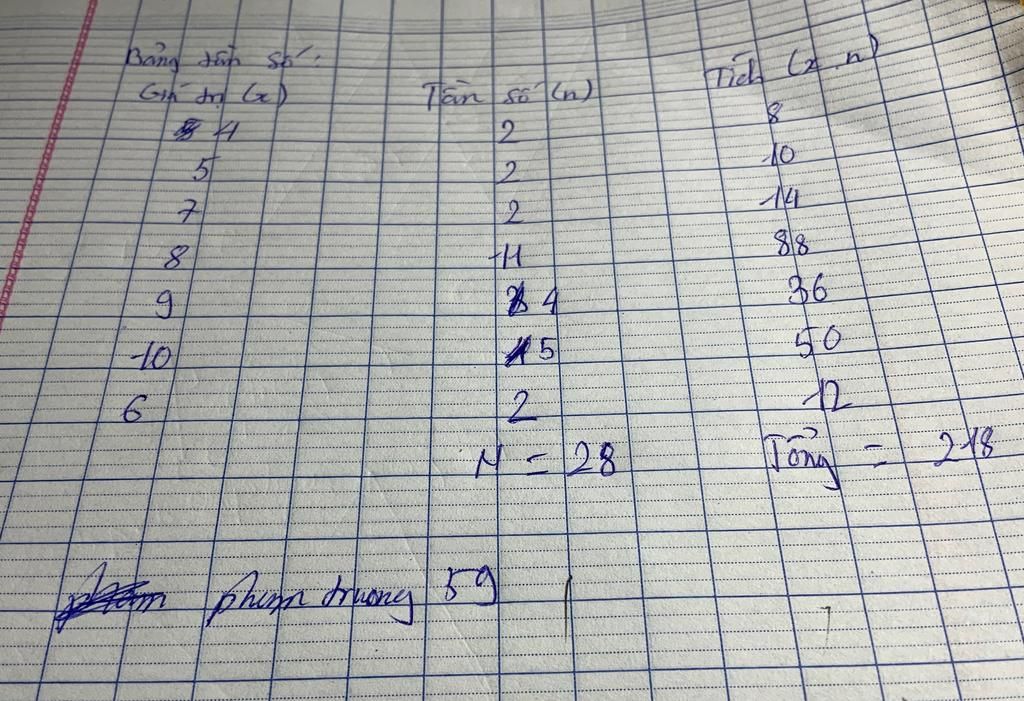 Bảng tần số.
Giá trị (x) Tần số (n) Tích (x.n)
4 2 8
5 2 10
7 2 14
8 11 88
9 4 36
10 5 50
6 2 12
N = 28 Tổng = 218
truong 59